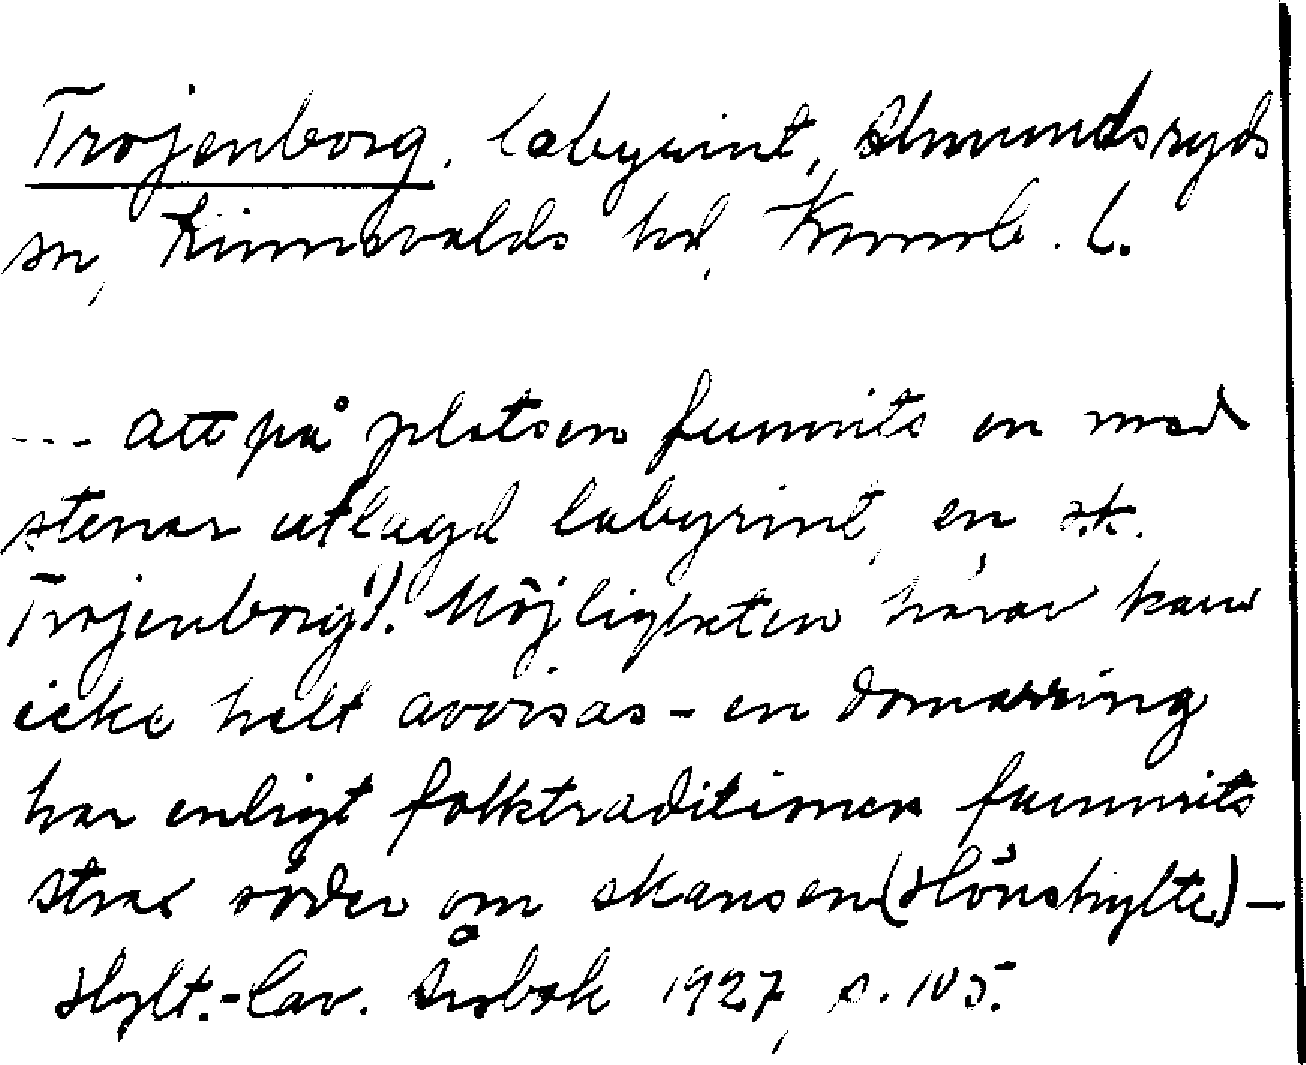 Trojenborg, labyrint, Almundsryds
sn, Kinnevalds hd, Kronob. l.
--- att på platsen funnits en med
stenar utlagd labyrint, en s.k.
Trojenborg¹). Möjligheten härav kan
icke helt avvisas - en domarring
har enligt folktraditionen funnits
strax söder om skansen (Hönshylte) -
Hylt.-Cav. Årsbok 1927, s. 105.